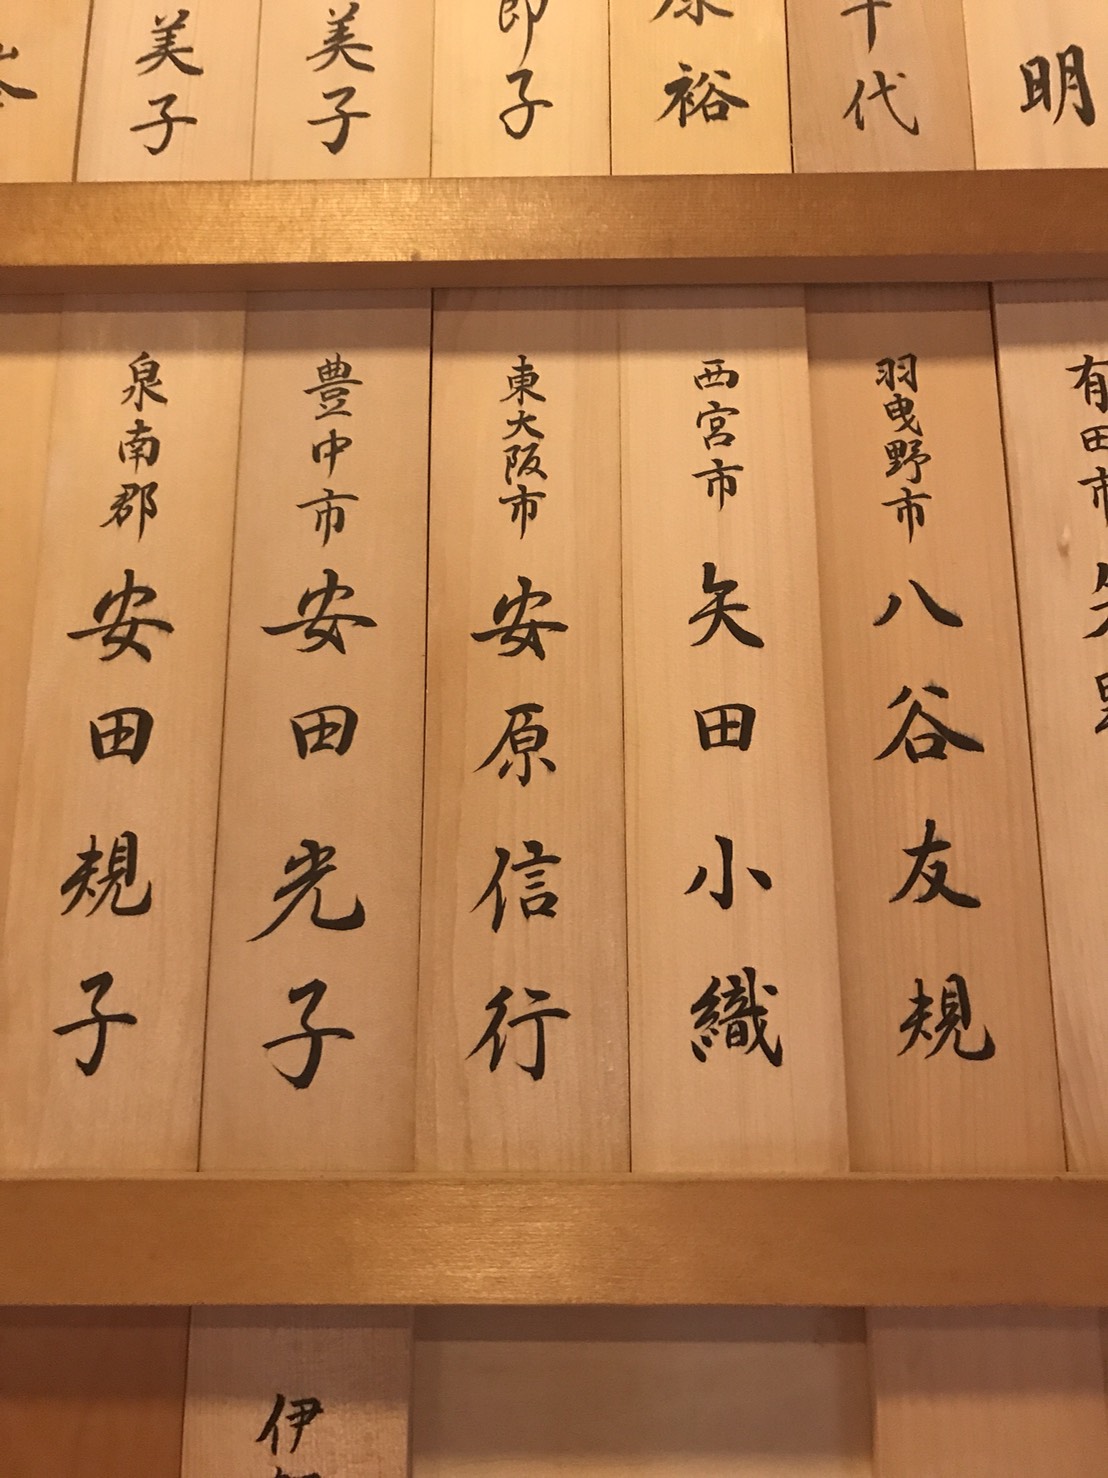 明
千代
原裕
子
美子
美子
有田市矢野
羽曳野市八谷友規
西宮市矢田小織
東大阪市安原信行
豊中市安田光子
泉南郡安田規子
伊